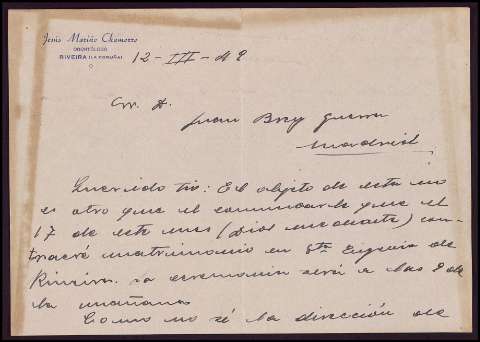 Jesús Mariño Chamorro
ODONTÓLOGO
RIVEIRA (LA CORUÑA)
12-III-49
Sr. D.
Juan Bray Guerra
Madrid
Querido tio: El objeto de esta no
es otro que el comunicarle que el
17 de este mes (Dios mediante) con-
traeré matrimonio en Sta Eugenia de
Riveira. La ceremonia será a las 9 de
la mañana
Como no sé la dirección de